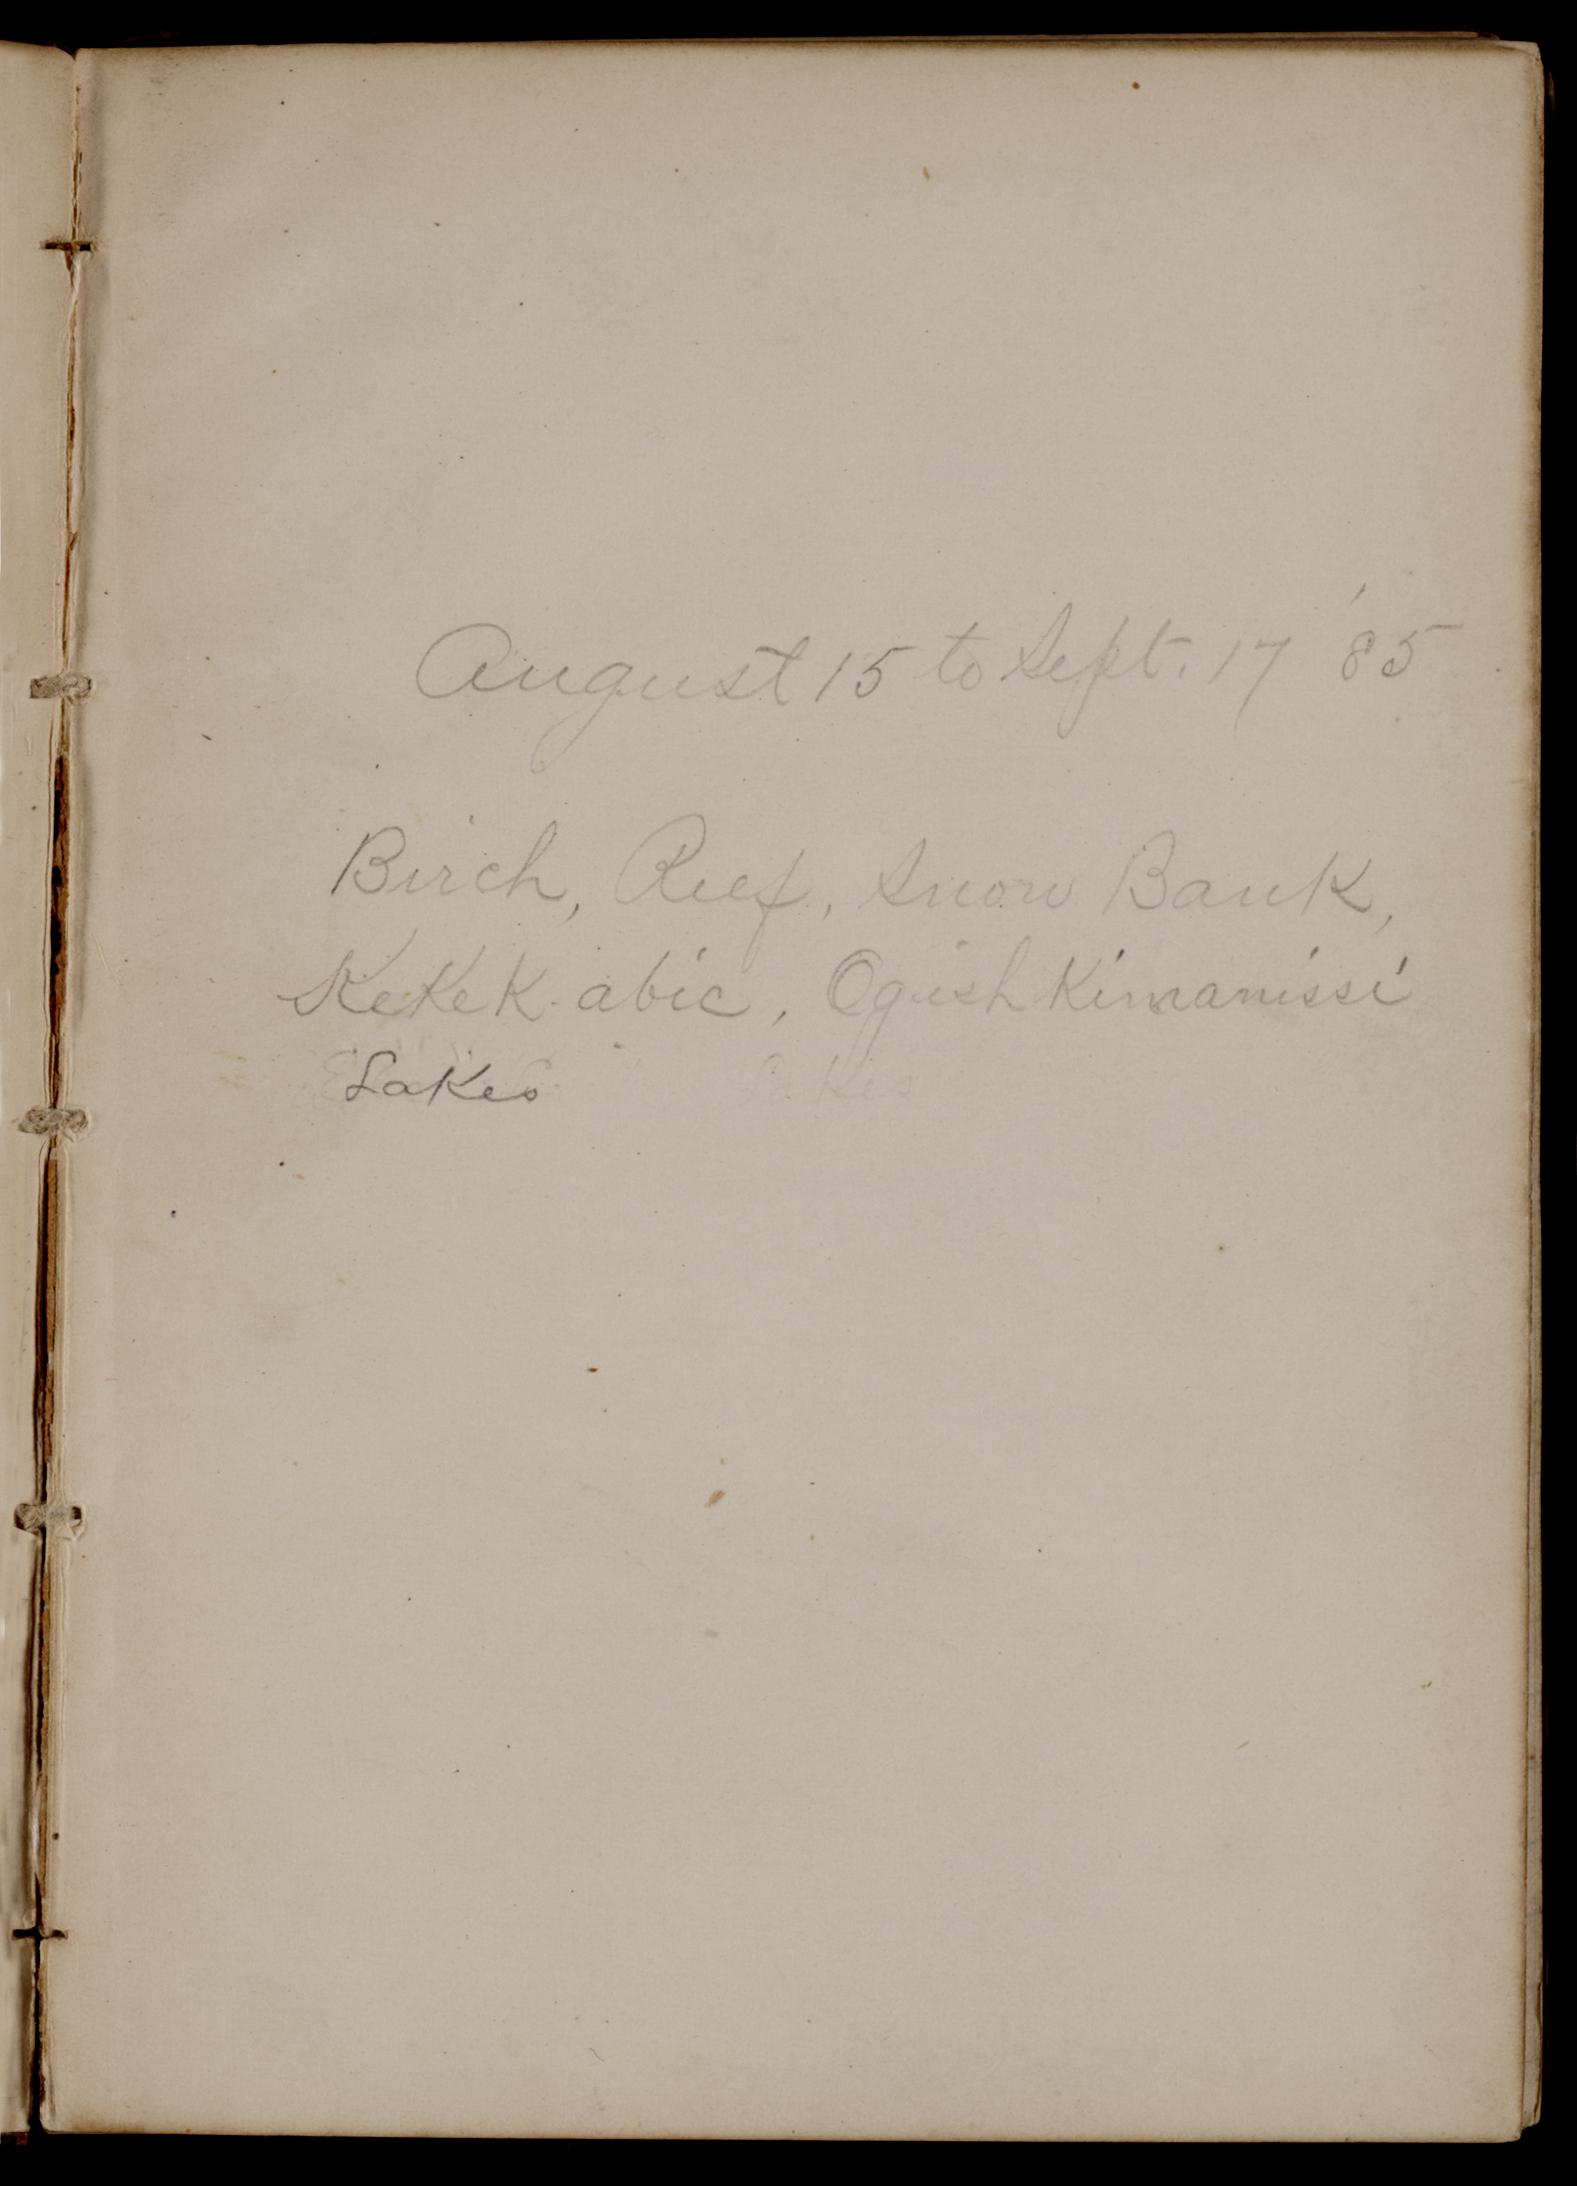 August 15 to Sept. 17 '85
Birch, Reef, Snow Bank,
KeKeK abic, OgishKimanissi
Lakes